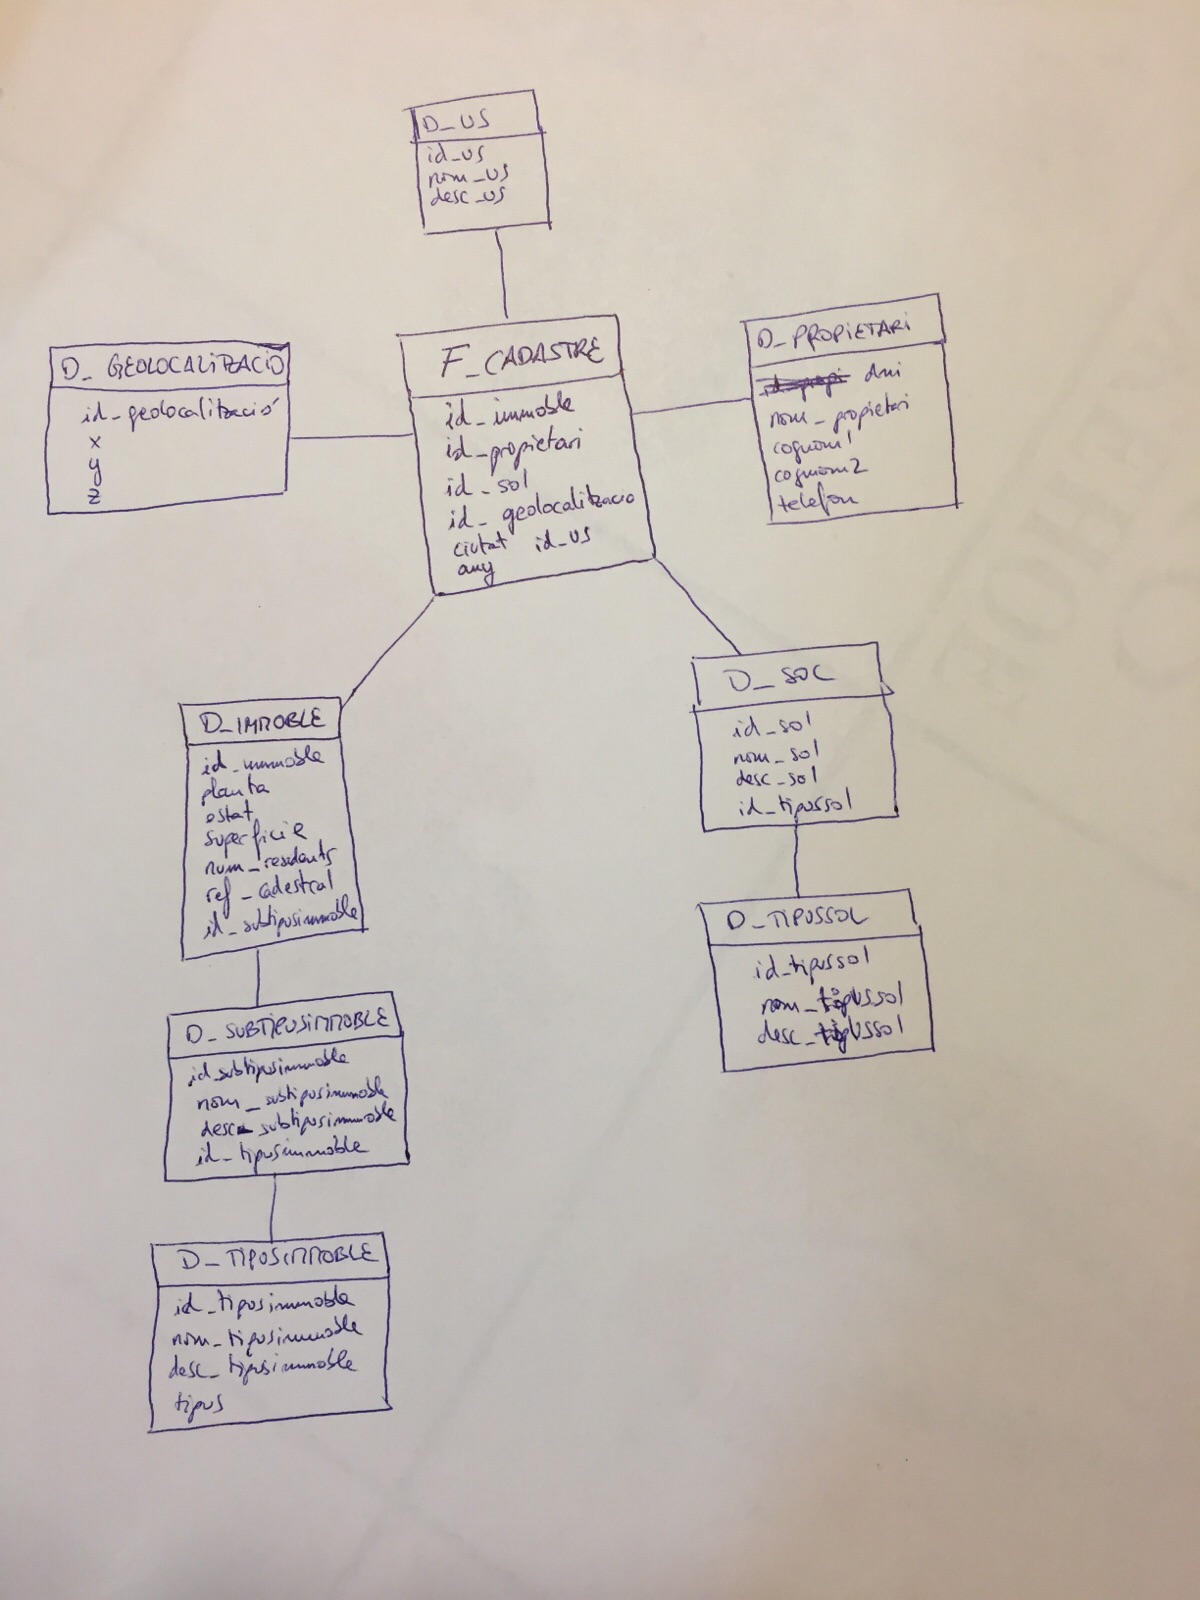 D_US
id_us
nom_us
desc_us
D_GEOLOCALITZACIO
id_geolocalització
x
y
z
F_CADASTRE
id_immoble
id_propietari
id_sol
id_geolocalitzacio
ciutat id_us
any
D_PROPIETARI
dni
nom_propietari
cognom1
cognom2
telefon
D_IMMOBLE
id_immoble
planta
estat
superficie
num_residents
ref_cadestral
id_subtipusimmoble
D_SOL
id_sol
nom_sol
desc_sol
id_tipussol
D_TIPUSSOL
id_tipussol
nom_tipussol
desc_tipussol
D_SUBTIPUSIMMOBLE
id_subtipusimmoble
nom_subtipusimmoble
desc_subtipusimmoble
id_tipusimmoble
D_TIPUSIMMOBLE
id_tipusimmoble
nom_tipusimmoble
desc_tipusimmoble
tipus